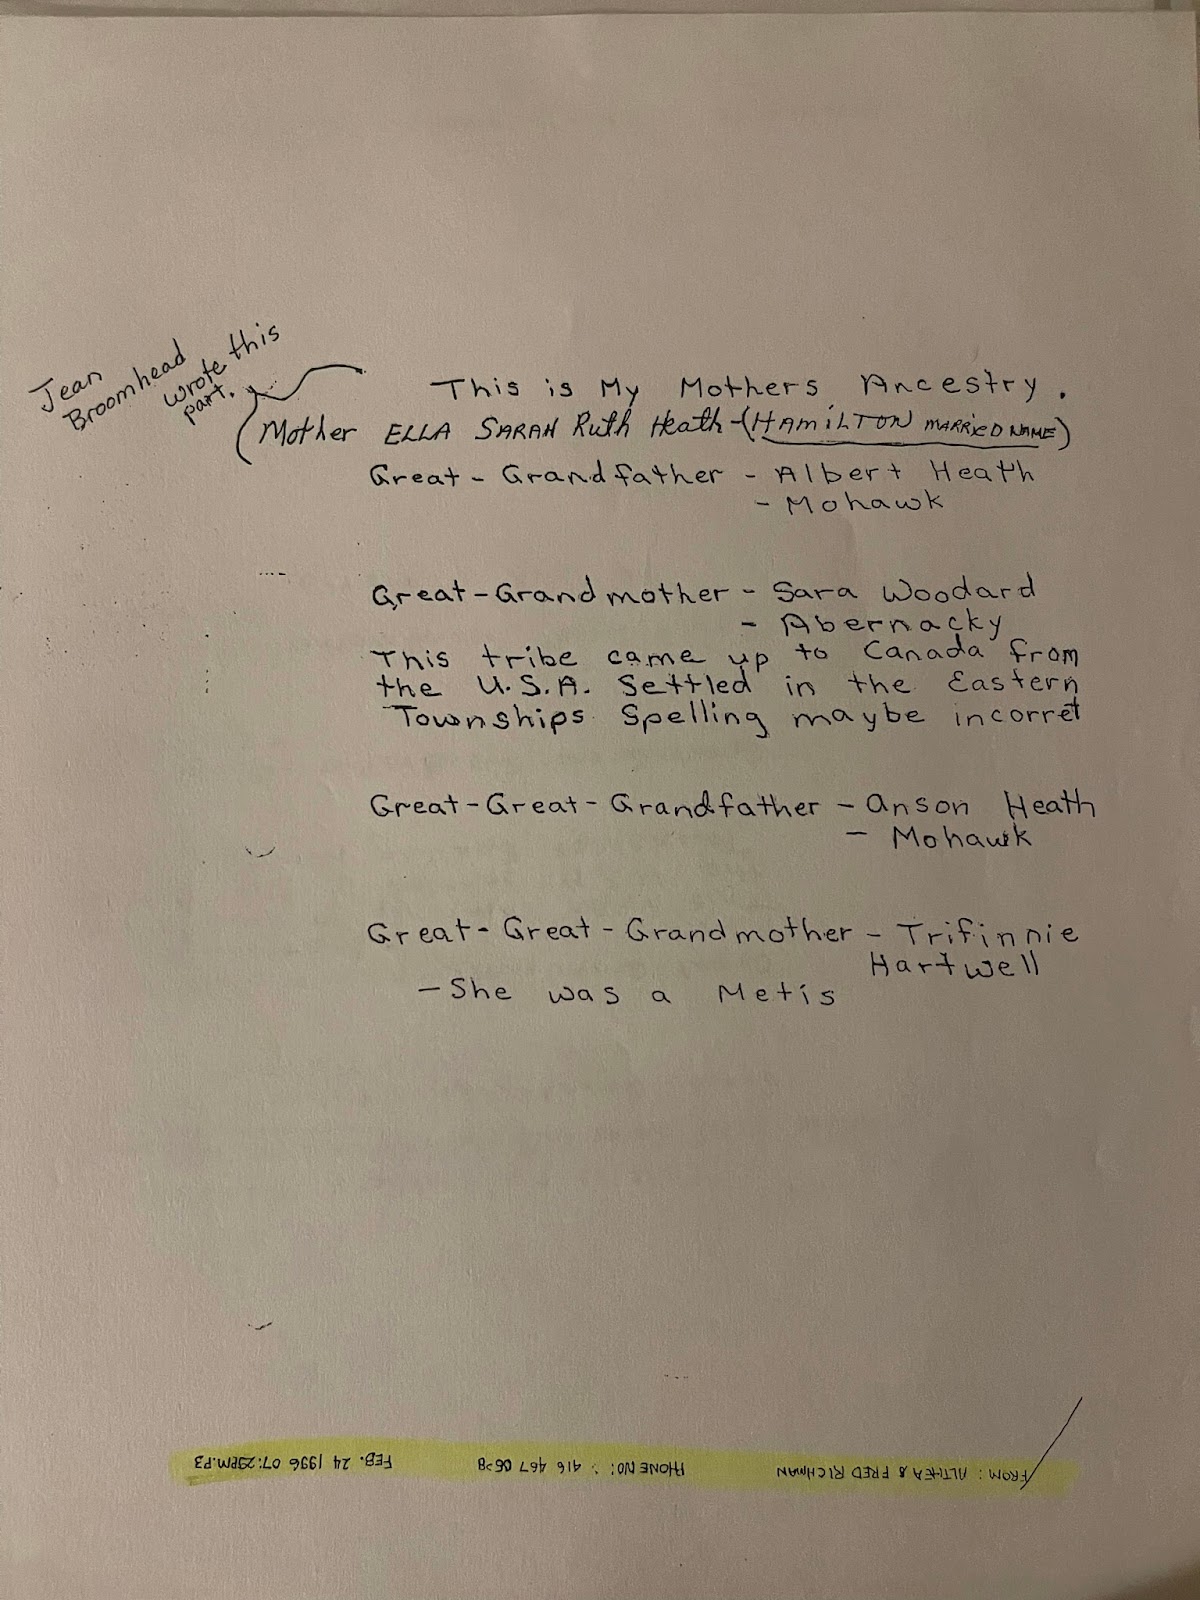 Jean
Broomhead
wrote this
part.
This is My Mothers Ancestry.
(Mother ELLA SARAH Ruth Heath-(HAMILTON MARRIED NAME)
Great - Grandfather - Albert Heath
- Mohawk
Great-Grandmother - Sara Woodard
- Abernacky
This tribe came up to Canada from
the U.S.A. Settled in the Eastern
Townships. Spelling maybe incorret
Great-Great-Grandfather - Anson Heath
- Mohawk
Great-Great-Grandmother - Trifinnie
Hartwell
- She was a Metis
FROM : ALTHEA & FRED RICHMAN PHONE NO. : 416 467 FEB. 24 1996 07:29PM P3